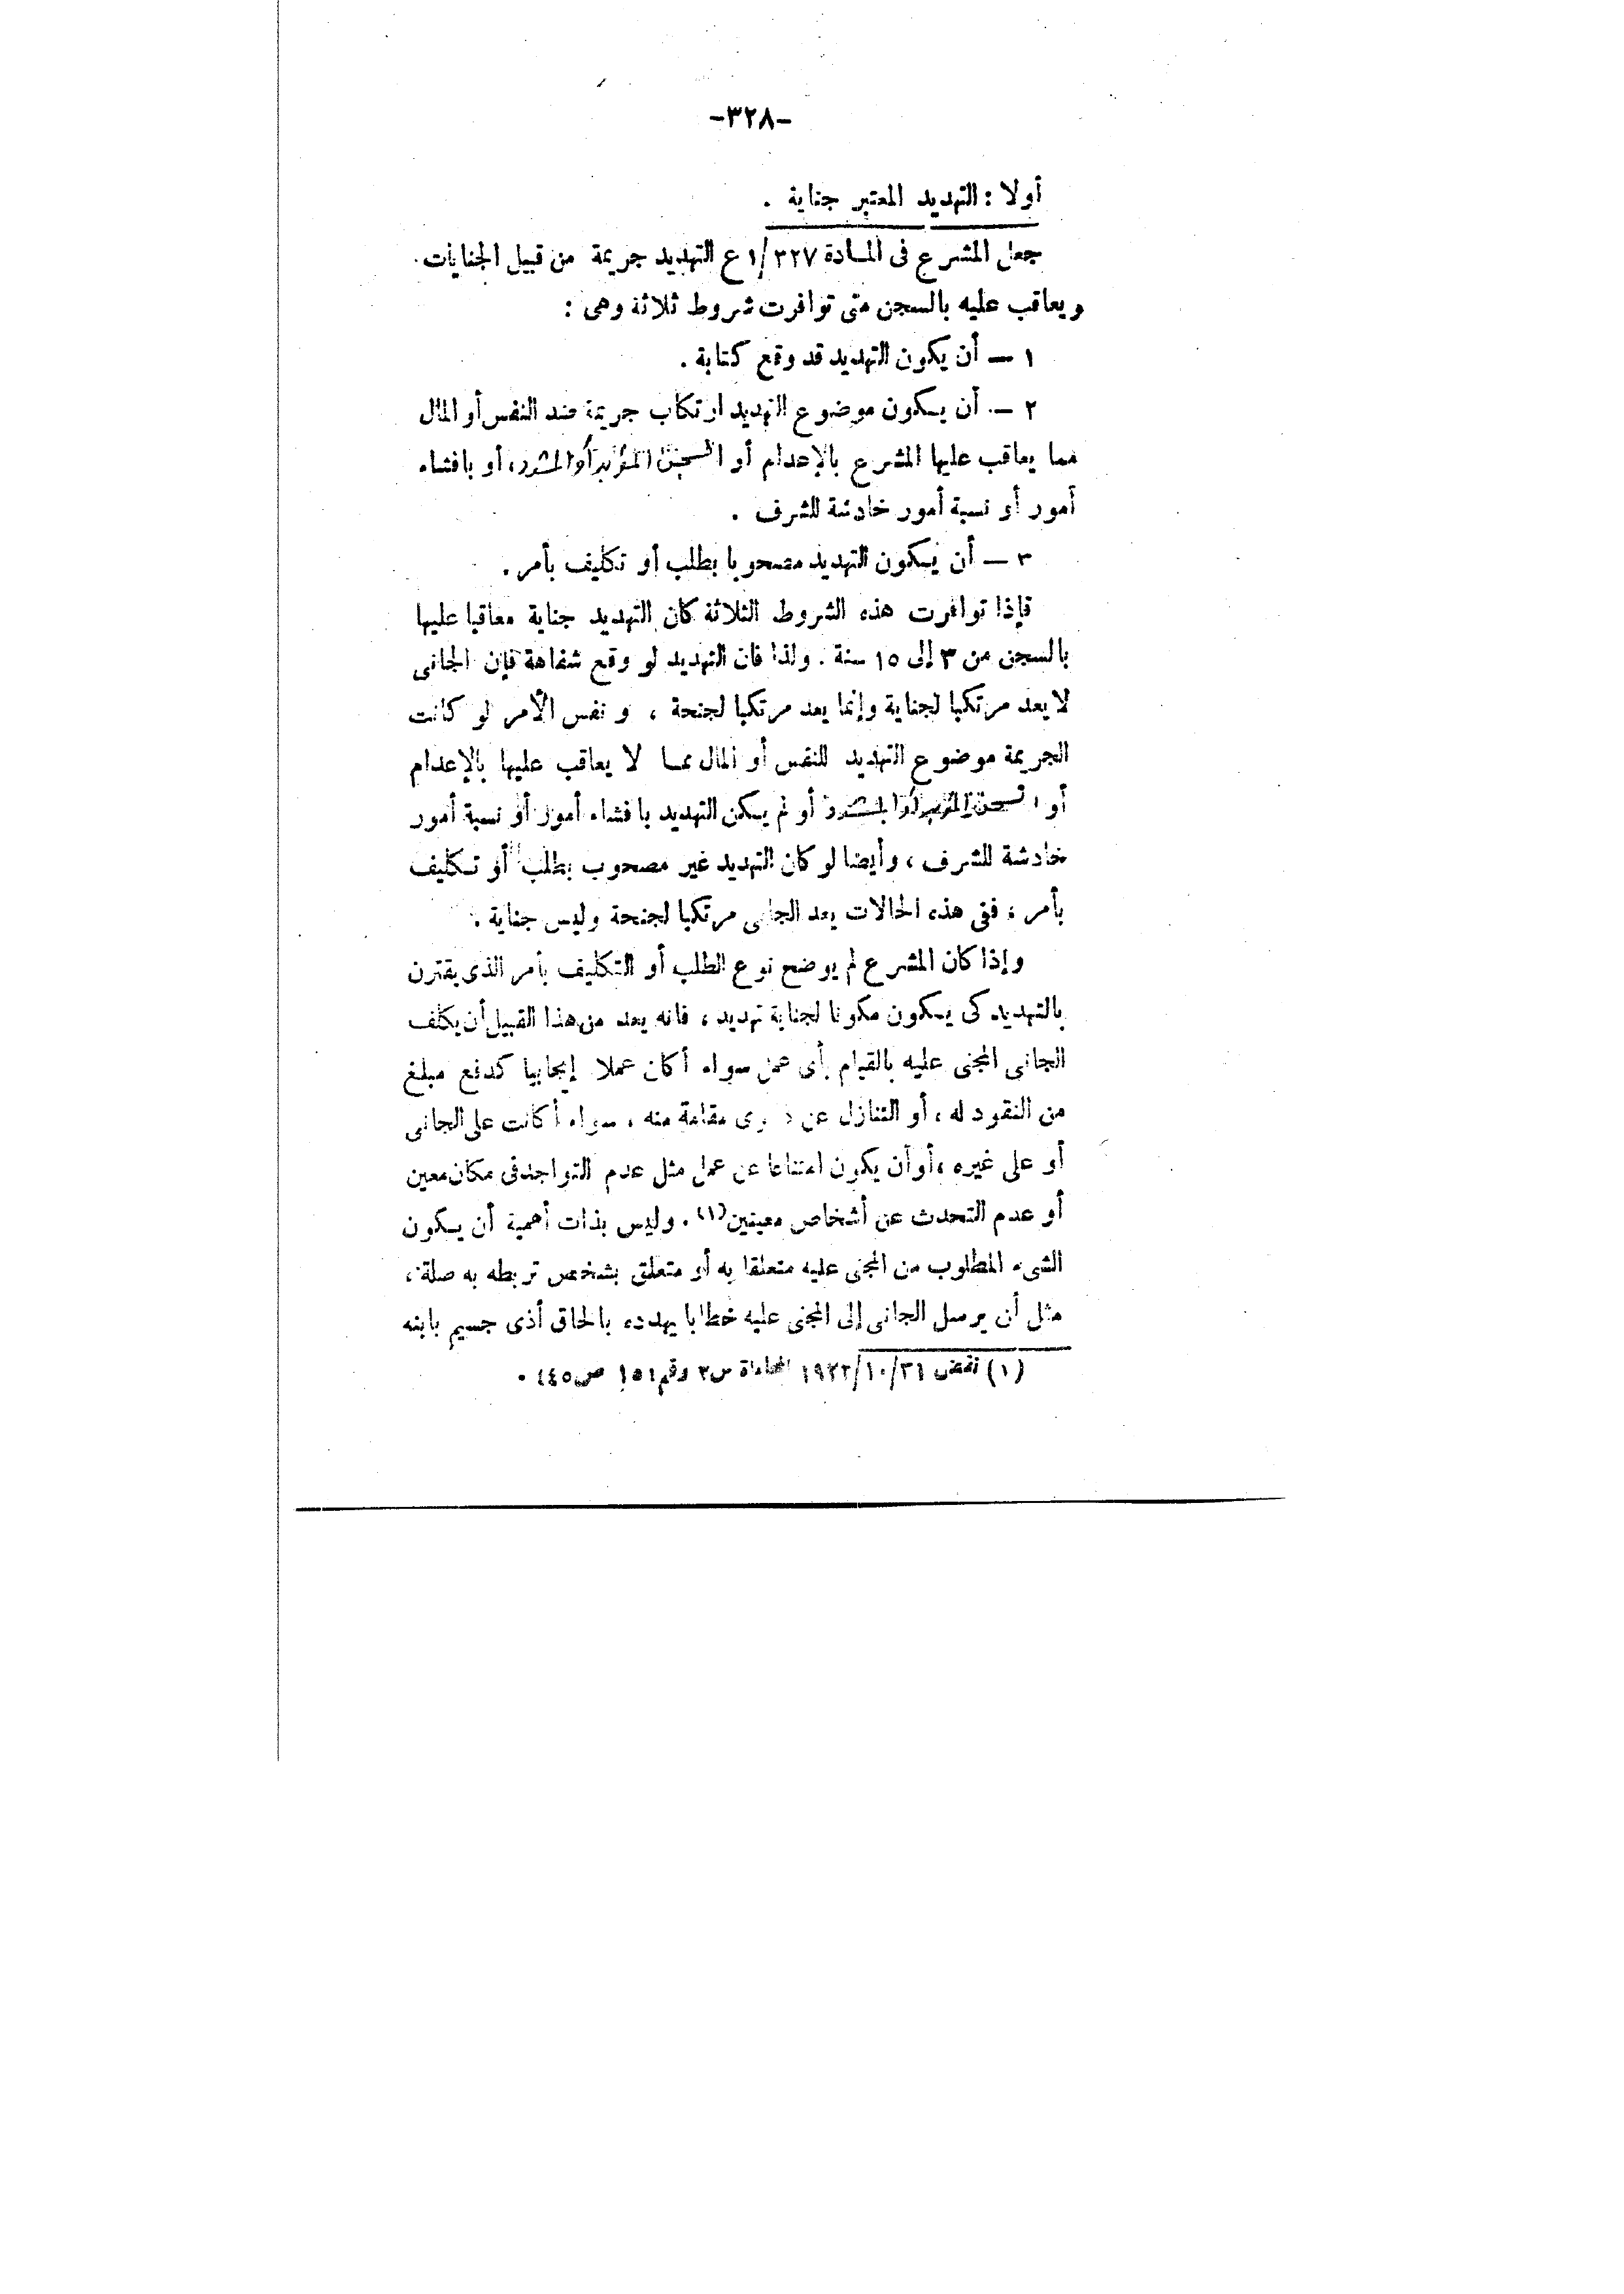 -٣٢٨-
أولا : التهديد المعتبر جناية .
جعل المشرع فى المادة ١/٣٢٧ ع التهديد جريمة من قبيل الجنايات
ويعاقب عليه بالسجن متى توافرت شروط ثلاثة وهى :
١ — أن يكون التهديد قد وقع كتابة .
٢ — أن يكون موضوع التهديد ارتكاب جريمة ضد النفس أو المال
مما يعاقب عليها المشرع بالإعدام أو السجن المؤبد أو المشدد، أو بافشاء
أمور أو نسبة أمور خادشة للشرف .
٣ — أن يكون التهديد مصحوبا بطلب أو تكليف بأمر .
فإذا توافرت هذه الشروط الثلاثة كان التهديد جناية معاقبا عليها
بالسجن من ٣ إلى ١٥ سنة . ولذا فان التهديد لو وقع شفاهة فإن الجانى
لا يعد مرتكبا لجناية وإنما يعد مرتكبا لجنحة ، ونفس الأمر لو كانت
الجريمة موضوع التهديد للنفس أو المال مما لا يعاقب عليها بالإعدام
أو السجن المؤبد أو المشدد أو لم يكن التهديد بافشاء أمور أو نسبة أمور
خادشة للشرف ، وأيضا لو كان التهديد غير مصحوب بطلب أو تكليف
بأمر ، ففى هذه الحالات يعد الجانى مرتكبا لجنحة وليس جناية .
وإذا كان المشرع لم يوضح نوع الطلب أو التكليف بأمر الذى يقترن
بالتهديد كى يكون مكونا لجناية تهديد ، فانه يعد من هذا القبيل أن يكلف
الجانى المجنى عليه بالقيام بأى عمل سواء أكان عملا إيجابيا كدفع مبلغ
من النقود له ، أو التنازل عن دعوى مقامة منه ، سواء أكانت على الجانى
أو على غيره ، أو أن يكون امتناعا عن عمل مثل عدم التواجد فى مكان معين
أو عدم التحدث عن أشخاص معينين (١) . وليس بذات أهمية أن يكون
الشىء المطلوب من المجنى عليه متعلقا به أو متعلق بشخص تربطه به صلة ،
مثل أن يرسل الجانى إلى المجنى عليه خطابا يهدده بالحاق أذى جسيم بابنه
(١) نقض ١٩٢٢/١٠/٣١ المحاماة س٣ رقم ص